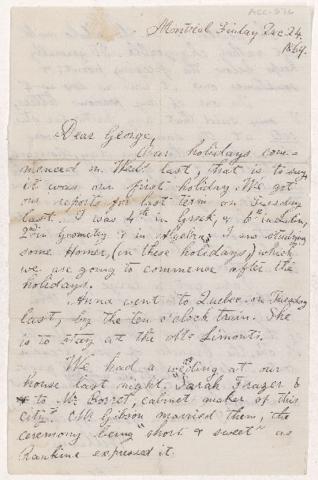 ACC-576
Montreal Friday Dec. 24.
1869.
Dear George,
Our holidays com-
menced on Wed. last, that is to say
it was our first holiday. We got
our reports for last term on Tuesday
last. I was 4th in Greek, & 6th in Latin,
2nd in Geometry & in Algebra. I am studying
some Homer, (in these holidays,) which
we are going to commence after the
holidays.
Anna went to Quebec on Tuesday
last, by the ten o'clock train. She
is to stay at the
We had a wedding at our
house last night. Sarah Frazer
to Mr. cabinet-maker of this
city. Mr. Gibson married them, the
ceremony being "short & sweet" as
Rankine expressed it.